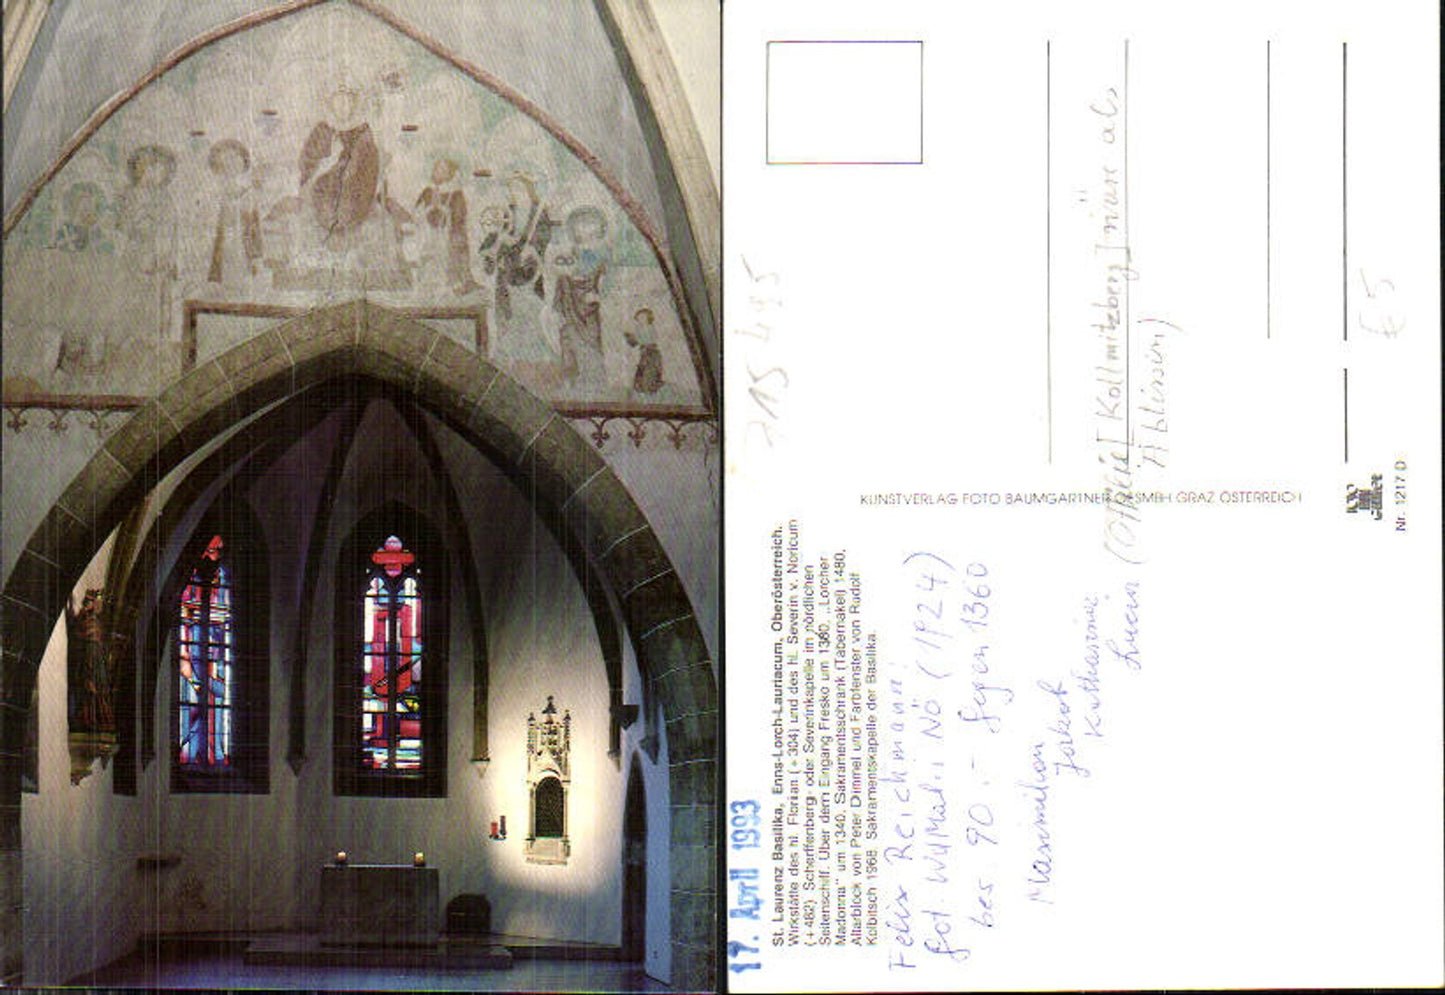 17. April 1993
St. Laurenz Basilika, Enns-Lorch-Lauriacum, Oberösterreich.
Wirkstätte des hl. Florian (+ 304) und des hl. Severin v. Noricum
(+ 482) Scherffenberg- oder Severinkapelle im nördlichen
Seitenschiff. Über dem Eingang Fresko um 1360, „Lorcher
Madonna" um 1340, Sakramentsschrank (Tabernakel) 1480,
Altarblock von Peter Dimmel und Farbfenster von Rudolf
Kolbitsch 1968. Sakramentskapelle der Basilika.
Felix Reichmann:
Got. NÖ (1924)
bes. 90.- gegen 1360
Maximilian
Jakob
Katharina
Lucia (Ottilie [Kollmitzberg] wäre als
Äbtissin)
KUNSTVERLAG FOTO BAUMGARTNER GESMBH GRAZ ÖSTERREICH
Nr. 1217 D
715 495
€ 5